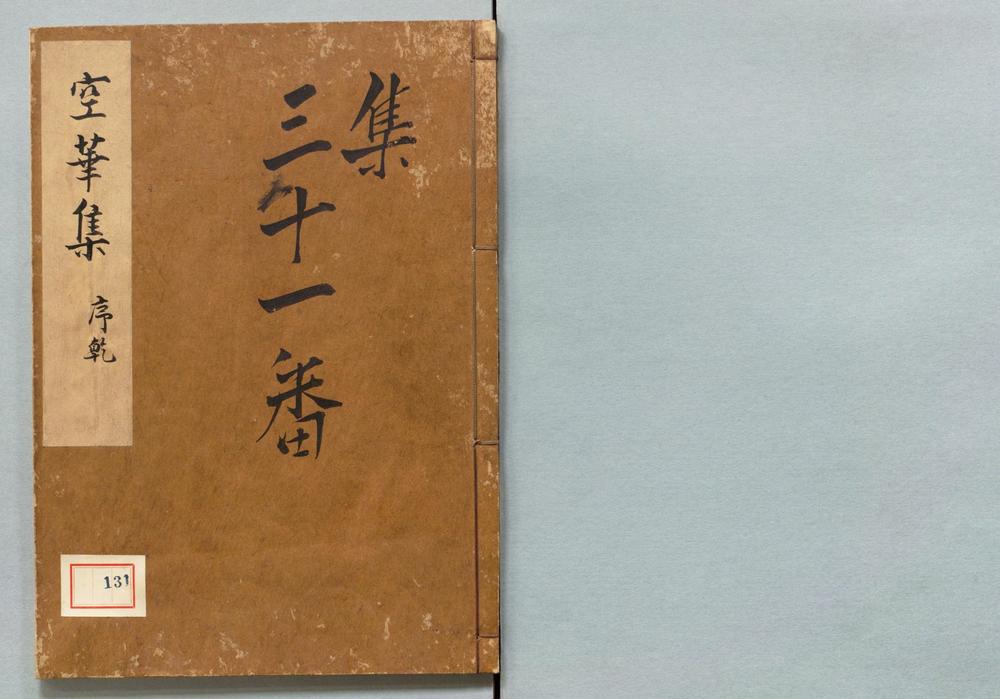 集
三十一番
空華集 序乾
131